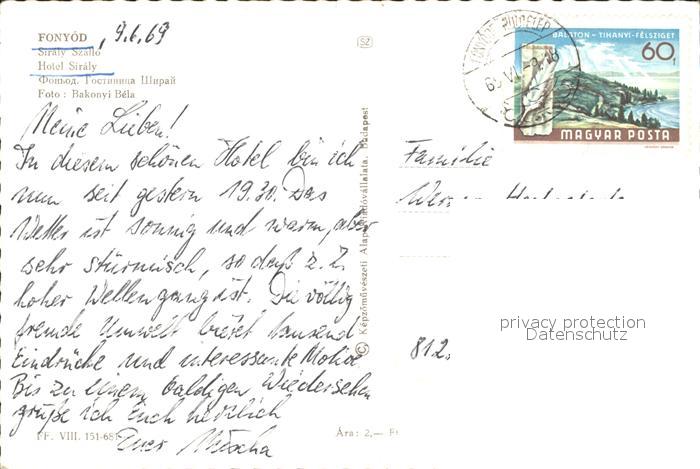 FONYÓD, 9.6.69
Sirály Szálló
Hotel Sirály
Фоньод. Гостиница Ширай
Foto : Bakonyi Béla
SZ
BALATON – TIHANYI-FÉLSZIGET
60f
MAGYAR POSTA
Meine Lieben!
In diesem schönen Hotel bin ich
nun seit gestern 19.30. Das
Wetter ist sonnig und warm, aber
sehr stürmisch, so daß z. Z.
hoher Wellengang ist. Die völlig
fremde Umwelt bietet tausend
Eindrücke und interessante Motive
Bis zu einem baldigen Wiedersehen
grüße ich Euch herzlich
Euer
FF. VIII. 151-681
Ára: 2,— Ft
© Képzőművészeti Alap Kiadóvállalata, Budapest
Familie
812.
privacy protection
Datenschutz